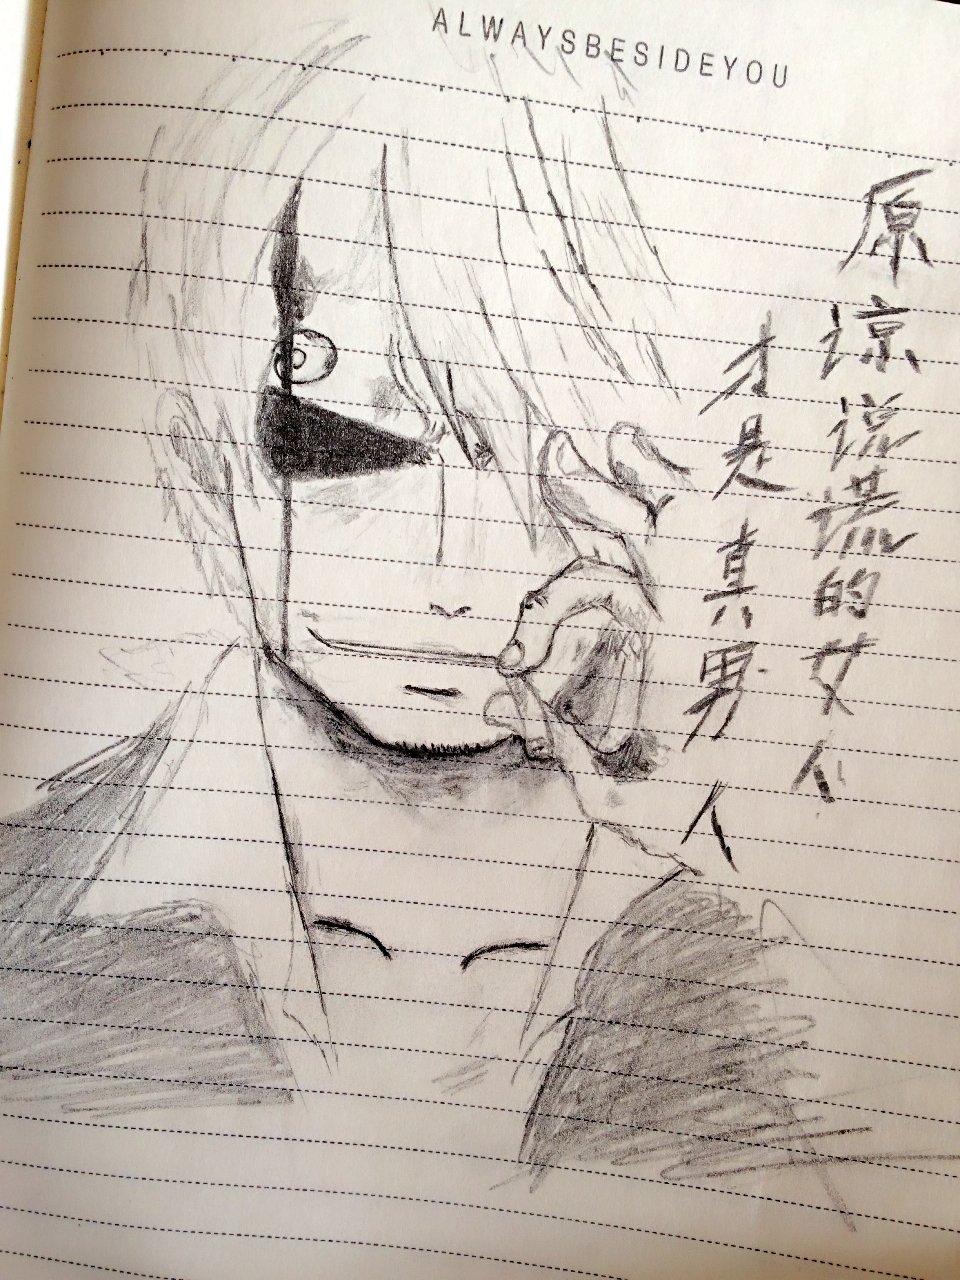 ALWAYSBESIDEYOU
原谅说谎的女人
才是真男人